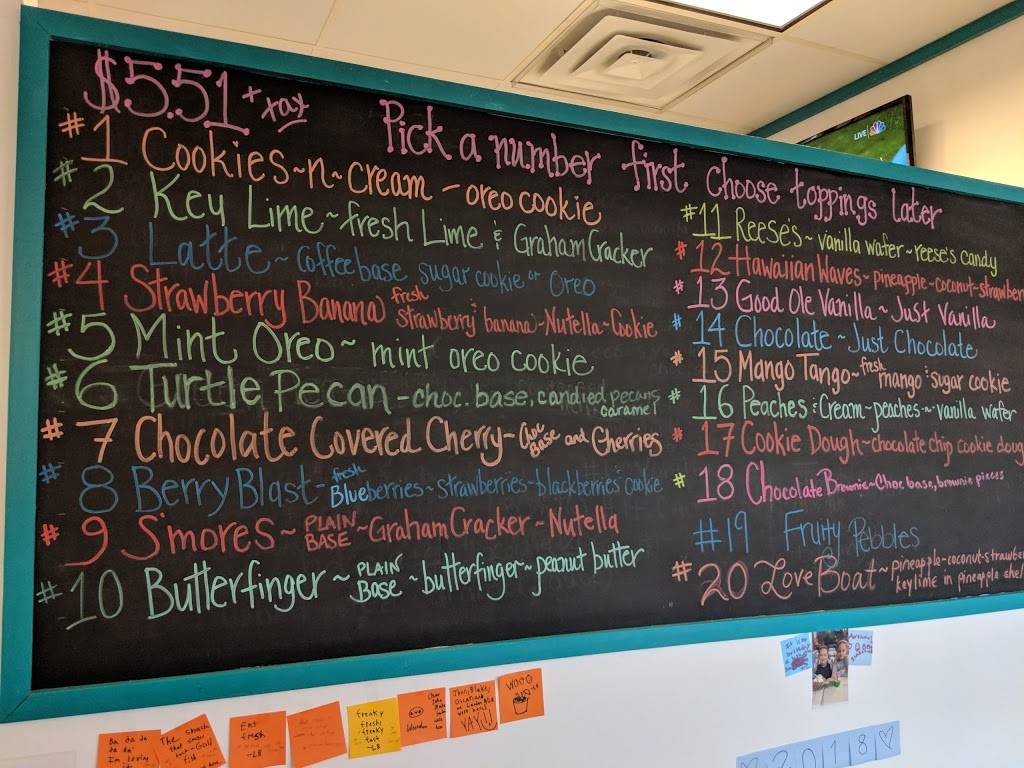 $5.51 + tax
Pick a number first choose toppings later
#1 Cookies~n~cream - oreo cookie
#2 Key Lime ~ fresh Lime & Graham Cracker
#3 Latte ~ Coffee base sugar cookie or Oreo
#4 Strawberry Banana fresh strawberry & banana ~ Nutella ~ Cookie
#5 Mint Oreo ~ mint oreo cookie
#6 Turtle Pecan - choc. base, candied pecans caramel
#7 Chocolate Covered Cherry - Choc Base and Cherries
#8 Berry Blast - fresh Blueberries ~ strawberries ~ blackberries cookie
#9 S'mores ~ PLAIN BASE ~ Graham Cracker ~ Nutella
#10 Butterfinger ~ PLAIN Base ~ butterfinger ~ peanut butter
#11 Reese's ~ vanilla wafer ~ reese's candy
#12 Hawaiian Waves ~ pineapple-coconut-strawber
#13 Good Ole Vanilla ~ Just Vanilla
#14 Chocolate ~ Just Chocolate
#15 Mango Tango ~ fresh mango & sugar cookie
#16 Peaches & Cream ~ peaches ~ vanilla wafer
#17 Cookie Dough ~ chocolate chip cookie doug
#18 Chocolate Brownie ~ Choc base, brownie pieces
#19 Fruity Pebbles
#20 Love Boat ~ pineapple-coconut-strawber
key lime in pineapple shel
LIVE
Eat
fresh
-LB
freaky
fresh
freaky
fast
-LB
YAY
WOOO
2018